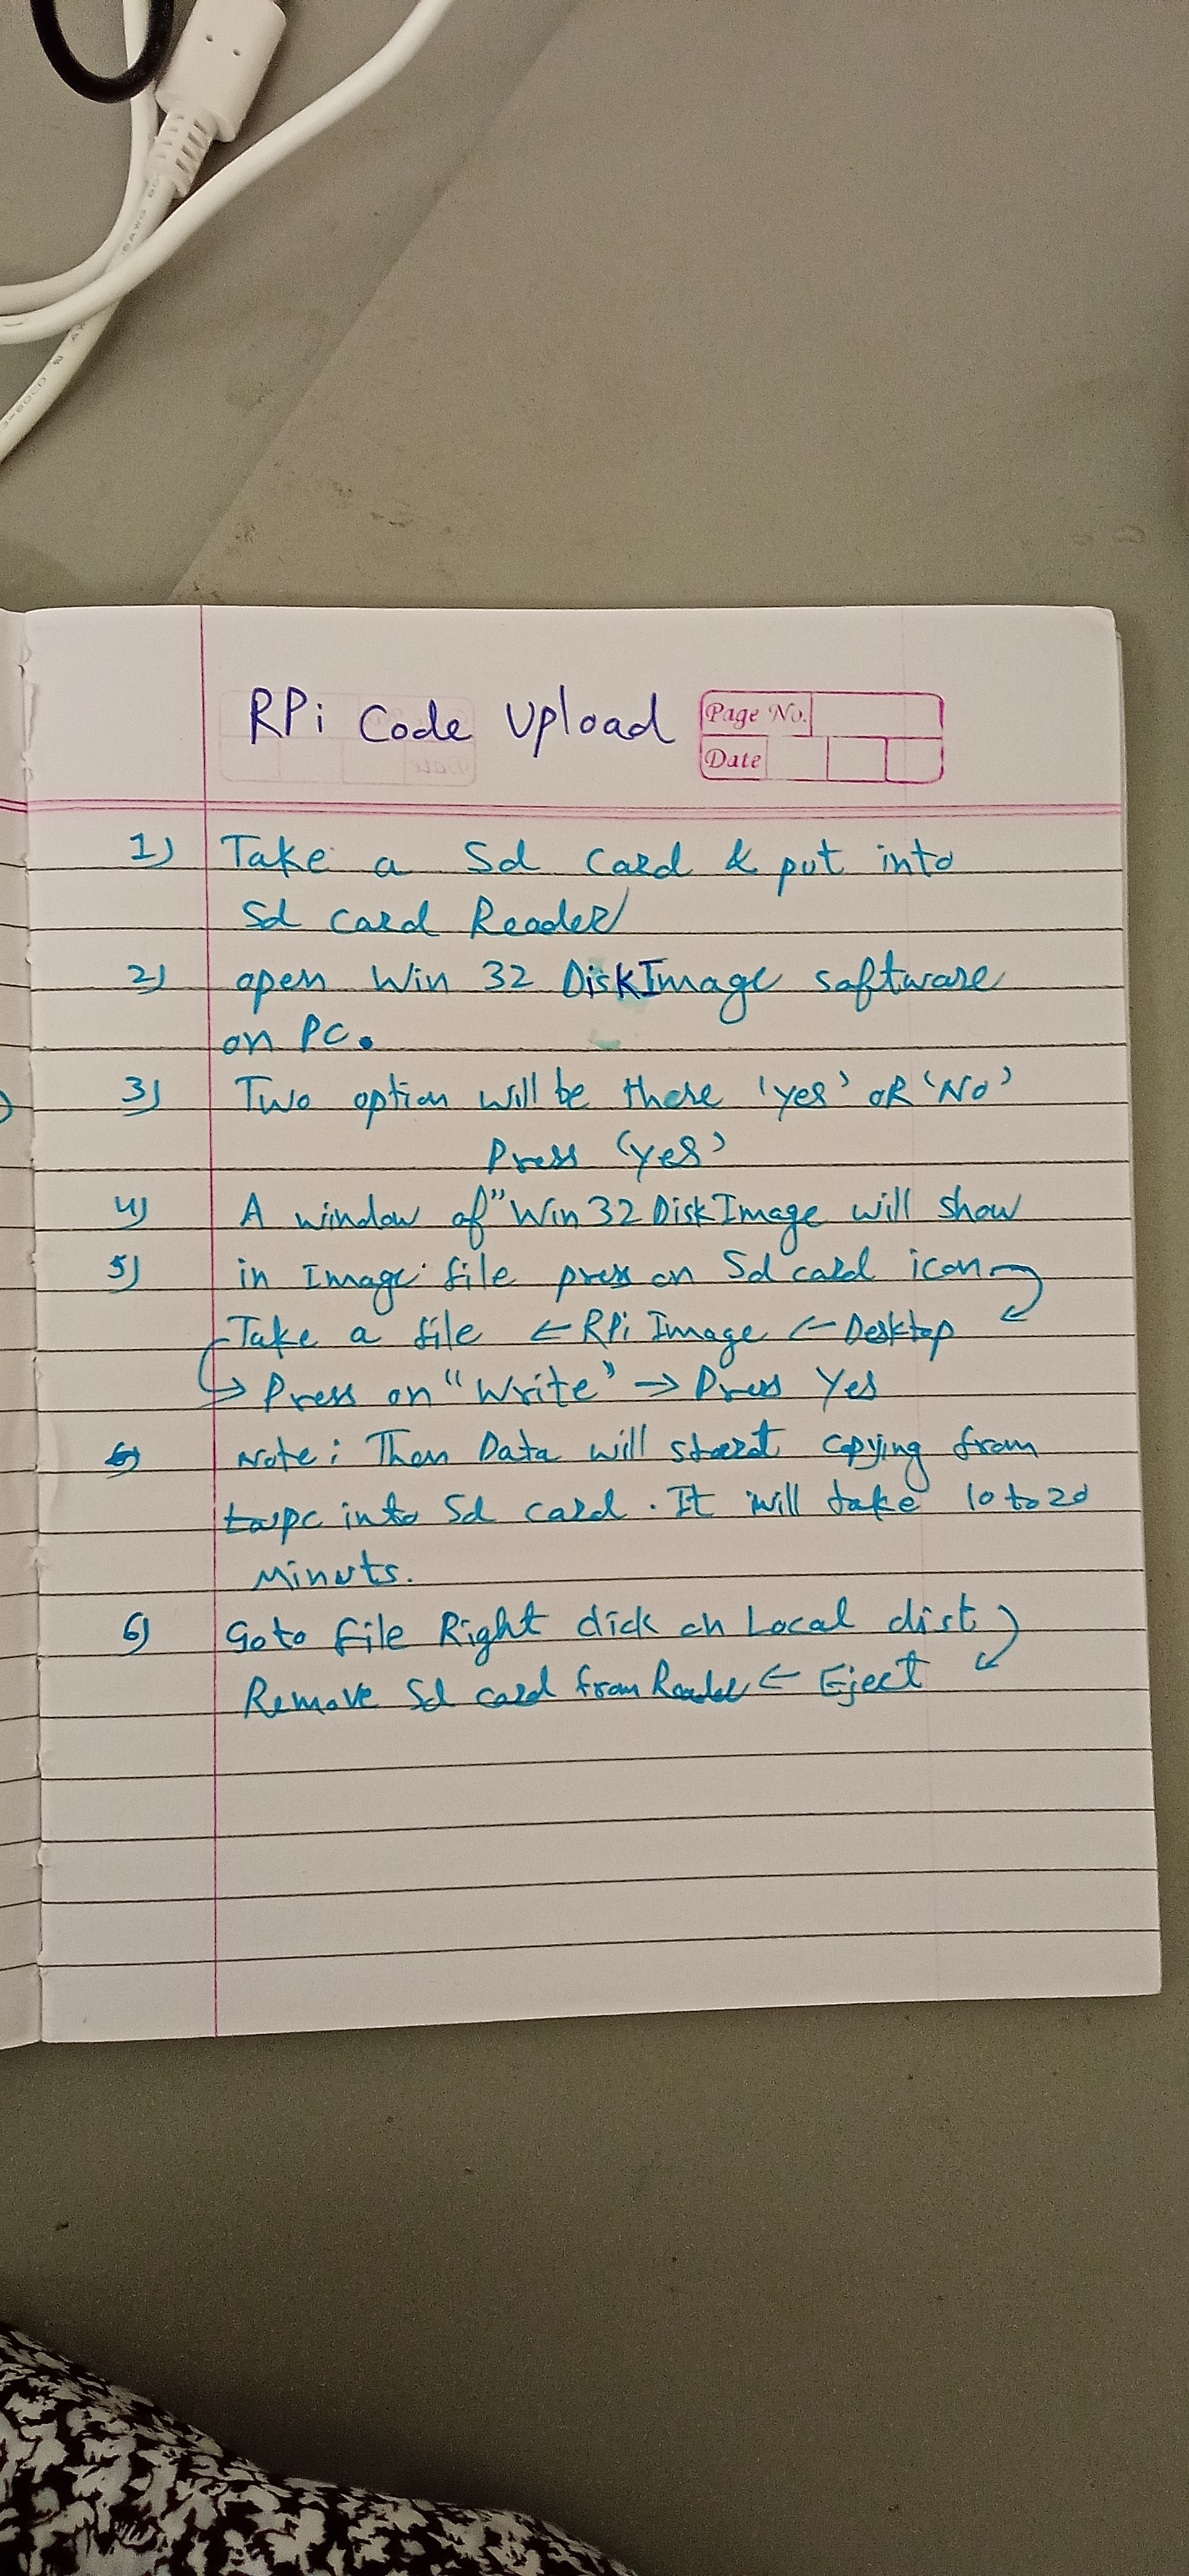 RPi Code Upload
Page No.
Date
1) Take a Sd Card & put into
Sd Card Reader
2) open Win 32 DiskImage software
on PC.
3) Two option will be there 'yes' OR 'No'
Press 'yes'
4) A window of "Win 32 DiskImage will show
5) in Image file press on Sd card icon
Take a file ← RPi Image ← Desktop
↳ Press on "Write" → Press Yes
Note: Then Data will start copying from
pc into Sd card. It will take 10 to 20
Minuts.
6) Goto file Right click on Local dist
Remove Sd card from Reader ← Eject